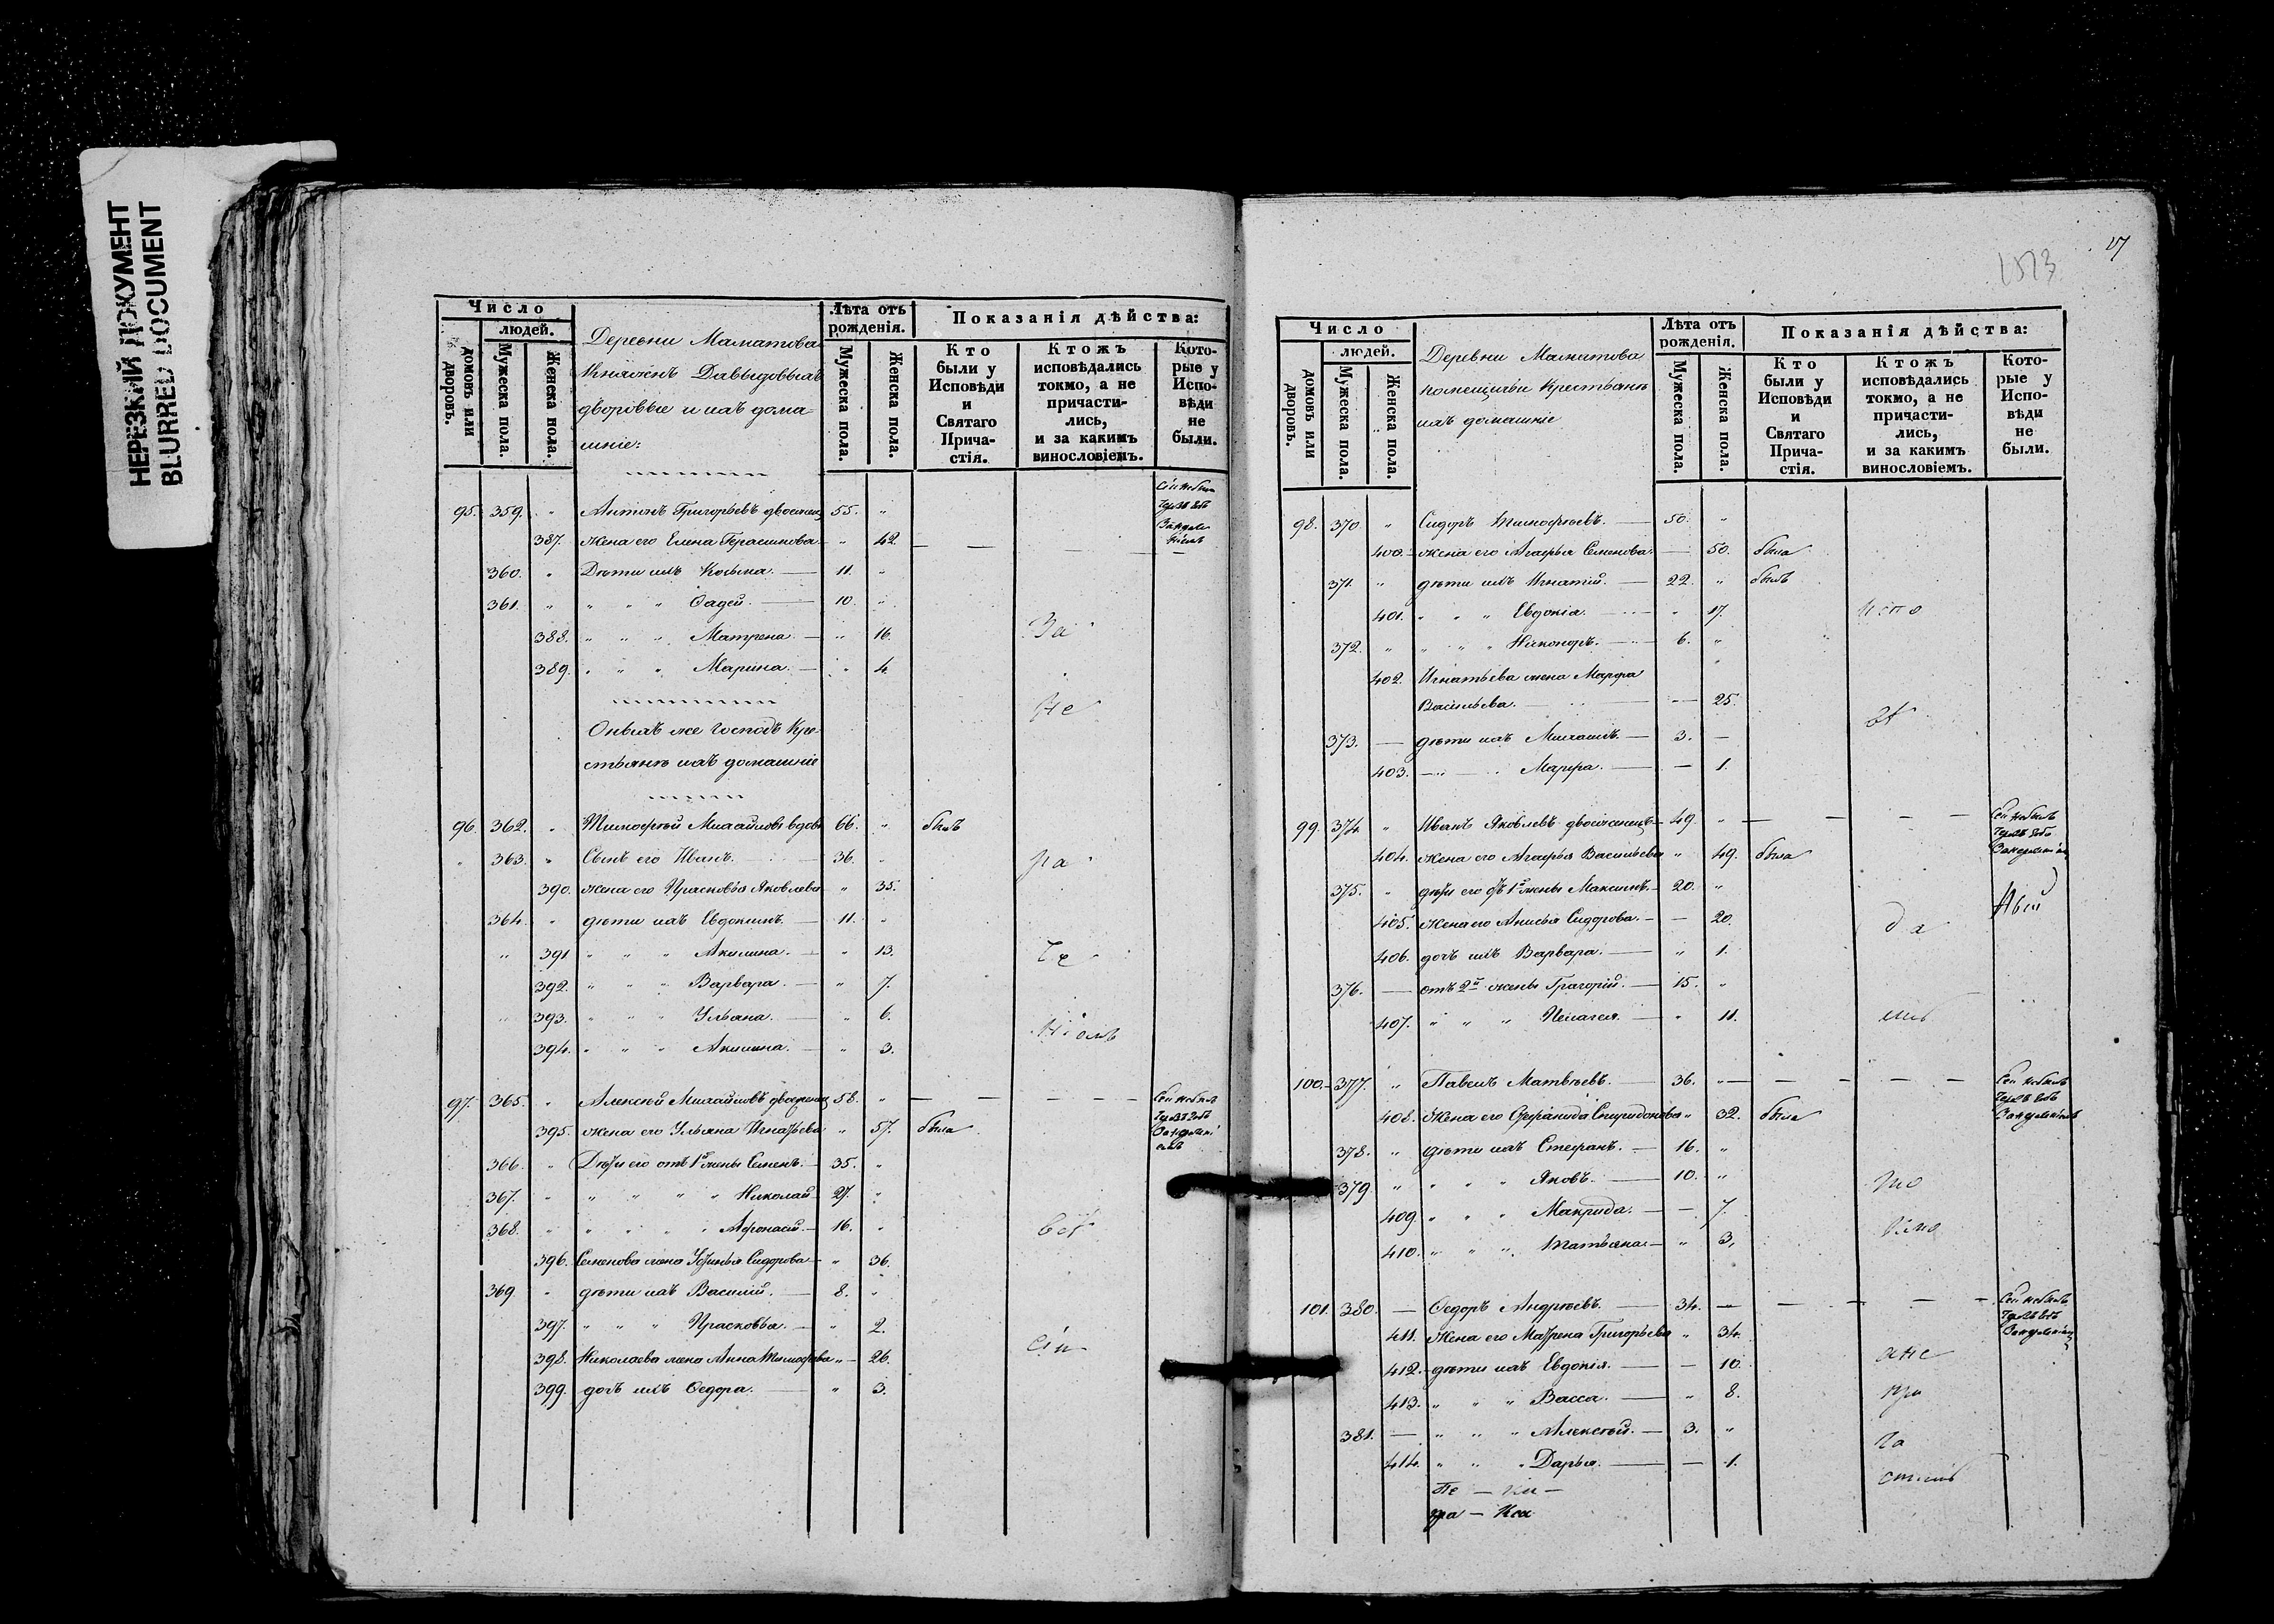 НЕРЕЗКИЙ ДОКУМЕНТ
BLURRED DOCUMENT
Число
людей.
домовъ или дворовъ.
Мужеска пола.
Женска пола.
Деревни Маматова
Княжен Давыдовыхъ
дворовые и ихъ дома-
шніе:
Лѣта отъ рожденія.
Мужеска пола.
Женска пола.
Показанія дѣйства:
Кто были у Исповѣди и Святаго Прича-стія.
Ктожъ исповѣдались токмо, а не причасти-лись, и за какимъ винословіемъ.
Кото-рые у Испо-вѣди не были.
95. 359. " Антонъ Григорьевъ двоеженец 55. "
387. жена его Елена Герасимова " 42.
360. " Дѣти ихъ Косьма. 11. "
361. " " " " Фадей. 10. "
388. " " " Матрена. " 16. За
389. " " " Марина. " 4.
Не
Оныхъ же Господъ Кре-
стьяне ихъ домашніе
96. 362. " Тимофей Михайловъ вдовъ 66. " былъ
" 363. " Сынъ его Иванъ. 36. "
390. жена его Прасковья Яковлева " 35.
364. " дѣти ихъ Евдокимъ. 11. "
" 391 " " " Акилина. " 13.
392. " " " Варвара. " 7.
393. " " " Ульяна. " 6.
394. " " " Акилина. " 3.
97. 365. " Алексѣй Михайловъ двоеженец 58. "
395. жена его Ульяна Игнатьева " 57. была
366. " Дѣти его отъ 1й жены Семенъ. 35. "
367. " " " " " Николай 27. "
368. " " " " " Афонасій. 16. "
396. Семенова жена Устинья Сидорова " 36.
369. " дѣти ихъ Василій. 8. "
397. " " " Прасковья. " 2.
398. Николаева жена Анна Тимофѣева " 26.
399. дочь ихъ Федора. " 3.
1573
17
Число
людей.
домовъ или дворовъ.
Мужеска пола.
Женска пола.
Деревни Маматова
помещичьи Крестьяне
ихъ домашніе
Лѣта отъ рожденія.
Мужеска пола.
Женска пола.
Показанія дѣйства:
Кто были у Исповѣди и Святаго Прича-стія.
Ктожъ исповѣдались токмо, а не причасти-лись, и за какимъ винословіемъ.
Кото-рые у Испо-вѣди не были.
98. 370 " Сидоръ Тимофеевъ. 50. "
400. жена его Агафья Семенова. — 50. была
371. " дѣти ихъ Игнатій. 22. " былъ
401. " " " Евдокія. " 17. испо
372. " " " " Никоноръ. 6. "
402. Игнатьева жена Марфа
Васильева. — 25.
373. — дѣти ихъ Михаилъ. 3. —
403. Марфа. — 1.
99. 374. " Иванъ Яковлевъ двоеженецъ 49. "
404. жена его Агафья Васильева " 49. была
375. " дѣти его отъ 1й жены Максимъ. 20. "
405. жена его Анисья Сидорова. — 20. да
406. дочь ихъ Варвара. " 1.
376. — отъ 2й жены Григорій. 15. "
407. " " " Пелагея. " 11.
100. 377. " Павелъ Матвѣевъ. 36. "
408. Жена его Спиридонова " 32. была
378. " дѣти ихъ Стефанъ. 16. "
379. " " " " Яковъ. 10. "
409. " " " Макрида. — 7.
410. " " " Татьяна " 3.
101. 380. — Федоръ Андреевъ. 34. —
411. Жена его Матрена Григорьева " 34.
412. дѣти ихъ Евдокія. — 10. ане
413. " " " Васса. " 8. при
381. — " " " Алексѣй. 3. " ча
414. " " " Дарья. — 1. стилъ